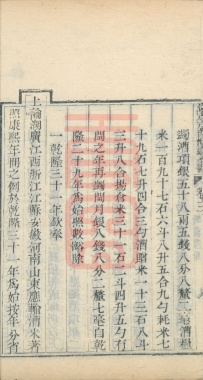 蠲酒項銀五十八兩五錢八分八釐三毫酒糧
米一百九十七石六斗八升五合九勺耗米七
十九石七升四合三勺酒贈米一十三石八斗
三升八合揚倉米三十一石二斗四升五勺冇
閏之年再蠲閏月銀八錢八分二釐七毫自乾
隆二十九年為始照數豁除
一乾隆三十一年欽奉
上諭湖廣江西浙江江蘇安徽河南山東應輸漕米著
照康熙年間之例於乾隆三十一年為始按年分省